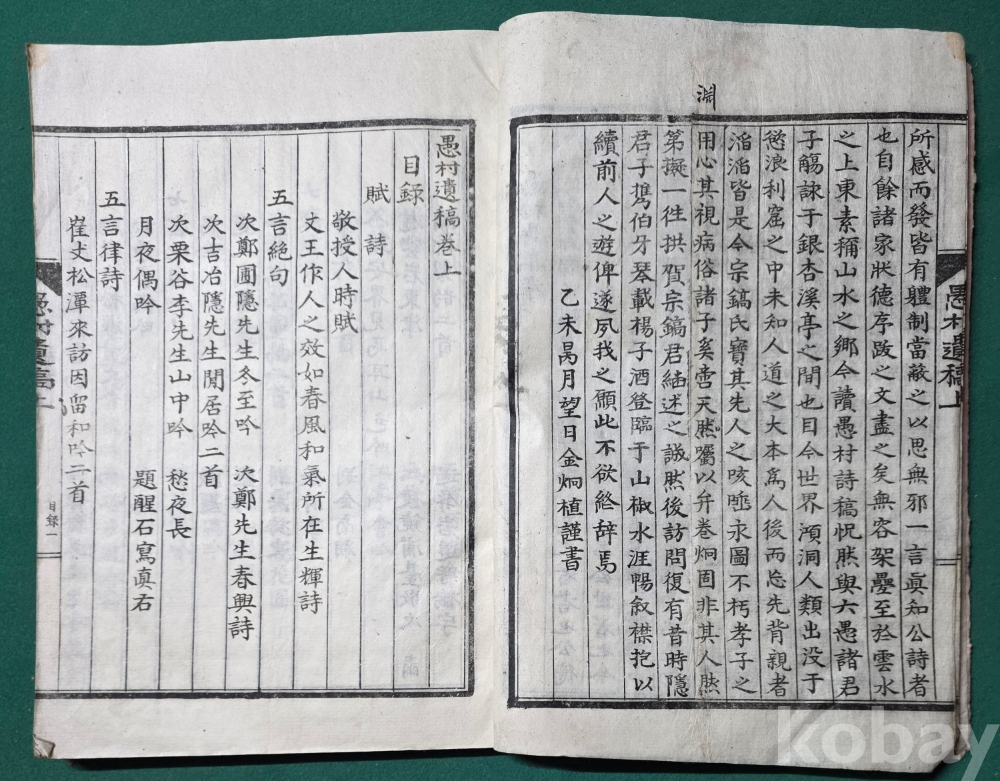 淵
所感而發皆有軆制當蔽之以思無邪一言眞知公詩者
也自餘諸家狀德序跋之文盡之矣無容架疊至於雲水
之上東素稱山水之鄉今讀愚村詩稿怳然與六愚諸君
子觴詠于銀杏溪亭之間也目今世界澒洞人類出没于
慾浪利窟之中未知人道之大本爲人後而忘先背親者
滔滔皆是今宗鎬氏寶其先人之咳唾永圖不朽孝子之
用心其視病俗諸子奚啻天 然囑以弁卷炯固非其人然
第擬一徃拱賀宗鎬君繼述之誠然後訪問復有昔時隱
君子携伯牙琴載楊子酒登臨于山椒水涯暢叙襟抱以
續前人之遊俾遂夙我之願此不欲終辞焉
乙未 月望日金炯植謹書
愚村遺稿上
愚村遺稿卷上
目録
賦 詩
敬授人時賦
文王作人之效如春風和氣所在生輝詩
五言絶句
次鄭圃隱先生冬至吟 次鄭先生春興詩
次吉冶隱先生閒居吟二首
次栗谷李先生山中吟 愁夜長
月夜偶吟 題醒石寫眞右
五言律詩
崔丈松潭來訪因 和吟二首
愚村遺稿上
目録一
kobay